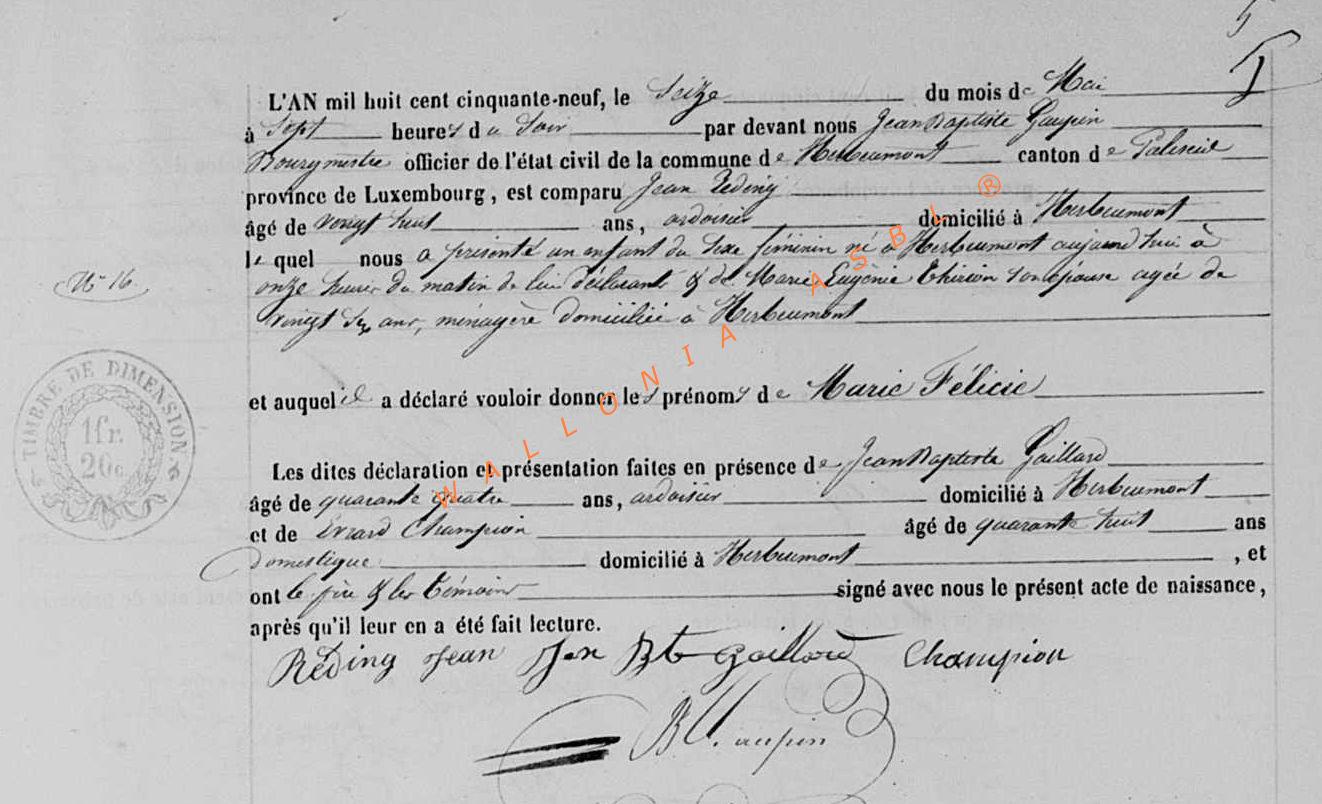 5
L'AN mil huit cent cinquante-neuf, le Seize du mois de Mai
à Sept heures du Soir par devant nous Jean Baptiste Gaupin
Bourgmestre officier de l'état civil de la commune de Herbeumont canton de Paliseul
province de Luxembourg, est comparu Jean Reding
âgé de vingt huit ans, ardoisier domicilié à Herbeumont
le quel nous a présenté un enfant du sexe féminin né à Herbeumont aujourd'hui à
N° 16
onze heures du matin de lui déclarant & de Marie Eugènie Thirion son épouse agée de
vingt six ans, ménagère domiciliée à Herbeumont
TIMBRE DE DIMENSION
1 fr.
20c
et auquel il a déclaré vouloir donner les prénoms de Marie Félicie
Les dites déclaration et présentation faites en présence de Jean Baptiste Gaillard
âgé de quarante quatre ans, ardoisier domicilié à Herbeumont
et de Evrard Champion âgé de quarante huit ans
domestique domicilié à Herbeumont , et
ont le père & les témoins signé avec nous le présent acte de naissance,
après qu'il leur en a été fait lecture.
Réding Jean Jen Bte Gaillard Champion
JB Gaupin
WALLONIA ASBL ®